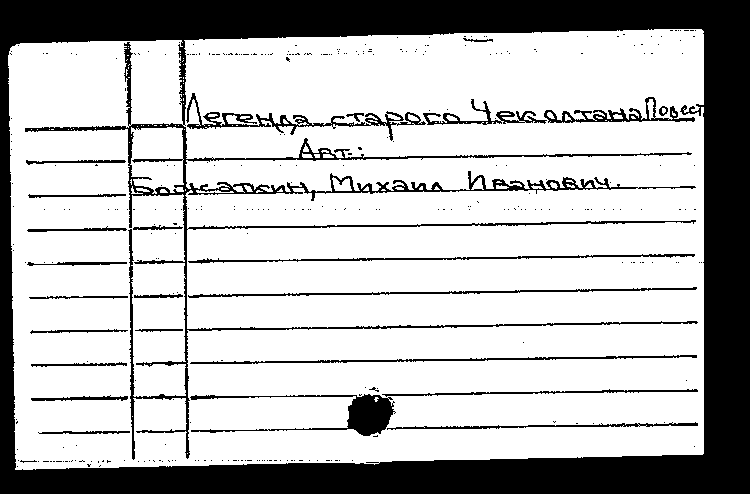 Легенда старого Чеколтана Повест
Авт.:
Божаткин, Михаил Иванович.